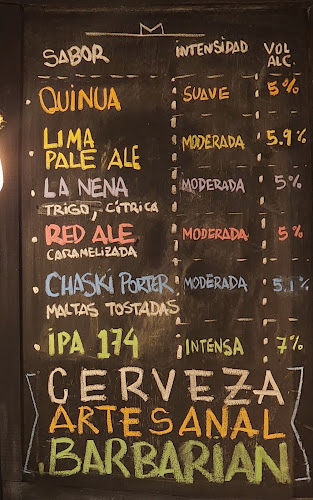 SABOR INTENSIDAD VOL ALC.
QUINUA SUAVE 5%
LIMA PALE ALE MODERADA 5.9%
LA NENA MODERADA 5%
TRIGO, CÍTRICA
RED ALE MODERADA 5%
CARAMELIZADA
CHASKI PORTER MODERADA 5.1%
MALTAS TOSTADAS
IPA 174 INTENSA 7%
CERVEZA
ARTESANAL
BARBARIAN